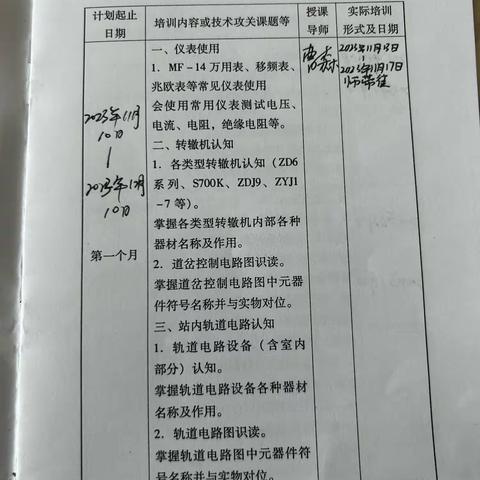 计划起止
日期
培训内容或技术攻关课题等
授课
导师
实际培训
形式及日期
2023年11月
10日
2023年12月
10日
第一个月
一、仪表使用
1. MF-14万用表、移频表、
兆欧表等常见仪表使用
会使用常用仪表测试电压、
电流、电阻，绝缘电阻等。
二、转辙机认知
1. 各类型转辙机认知（ZD6
系列、S700K、ZDJ9、ZYJ1
-7等）。
掌握各类型转辙机内部各种
器材名称及作用。
2. 道岔控制电路图识读。
掌握道岔控制电路图中元器
件符号名称并与实物对位。
三、站内轨道电路认知
1. 轨道电路设备（含室内
部分）认知。
掌握轨道电路设备各种器材
名称及作用。
2. 轨道电路图识读。
掌握轨道电路图中元器件符
号名称并与实物对位。
2023年11月13日
2023年11月17日
师带徒